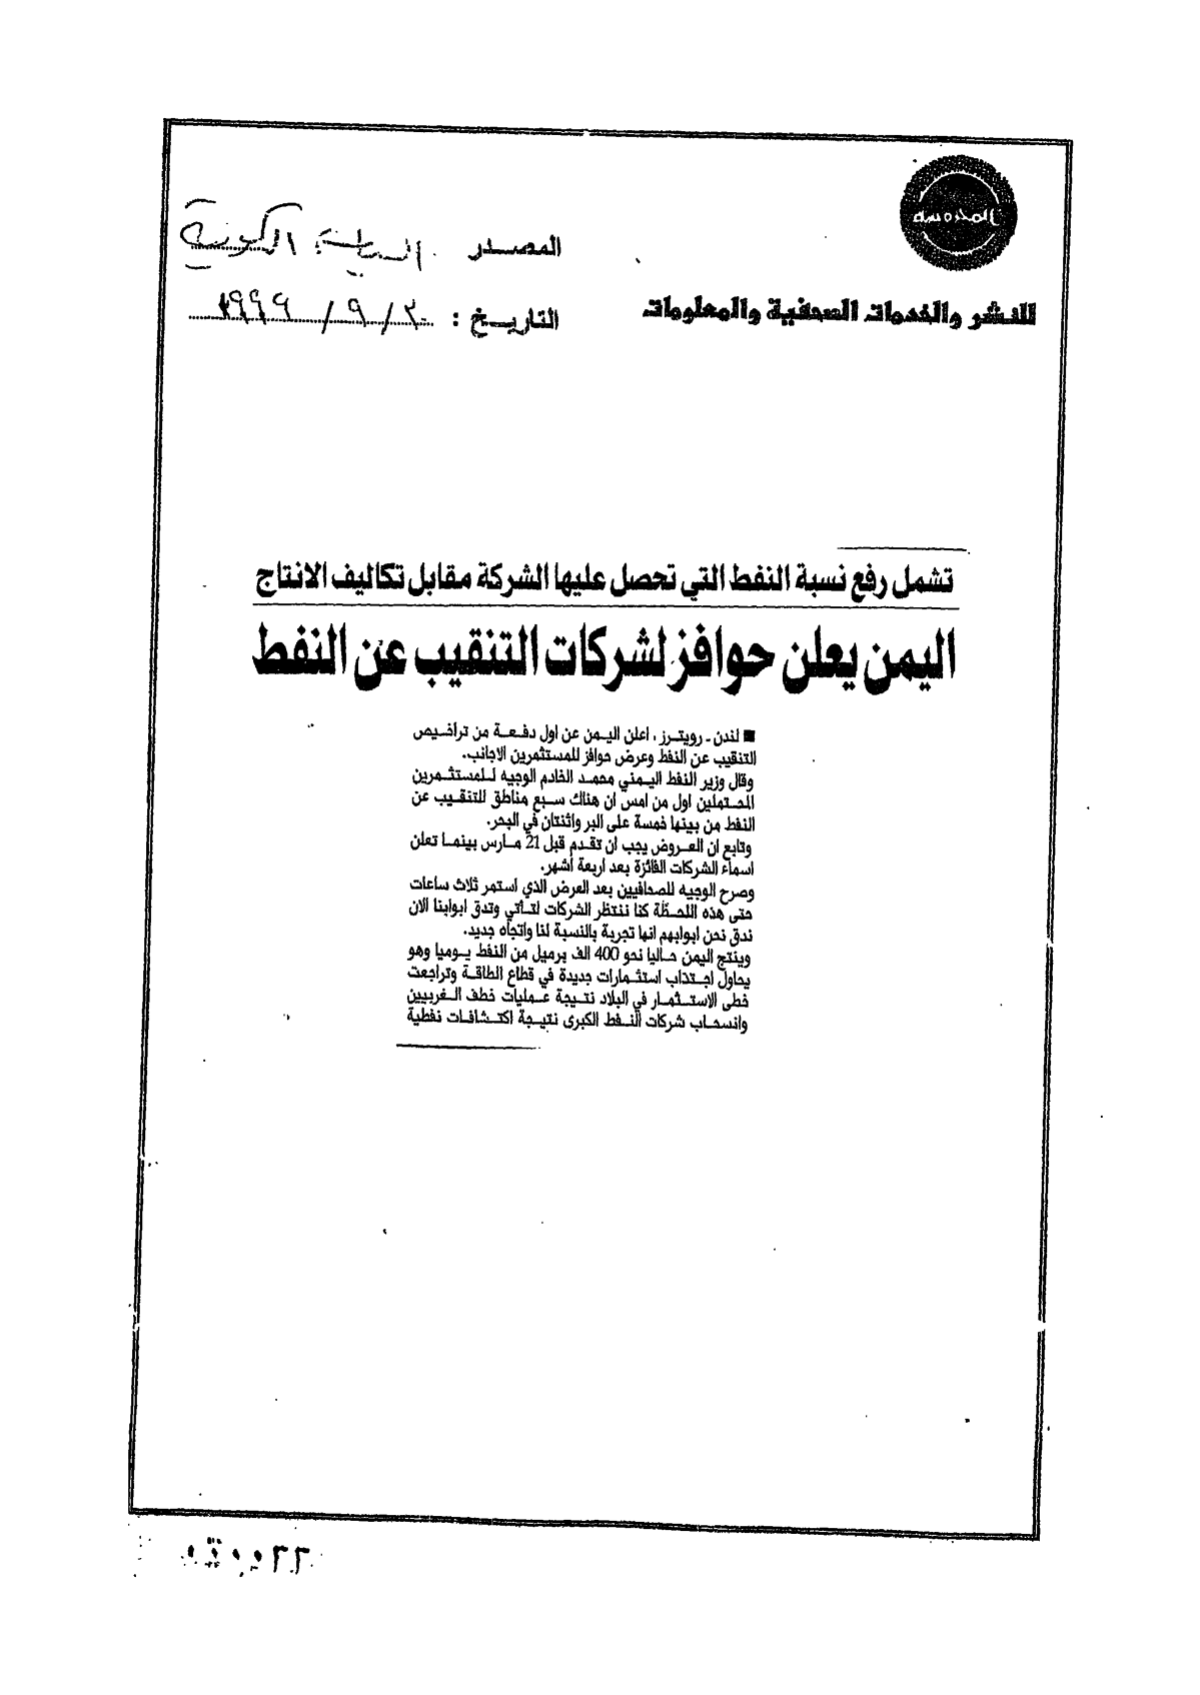 المصدر السياسة الكويتية
للنشر والخدمات الصحفية والمعلومات
التاريخ : ٣٠ / ٩ / ١٩٩٩
تشمل رفع نسبة النفط التي تحصل عليها الشركة مقابل تكاليف الانتاج
اليمن يعلن حوافز لشركات التنقيب عن النفط
■ لندن - رويترز، اعلن اليمن عن اول دفعة من تراخيص
التنقيب عن النفط وعرض حوافز للمستثمرين الاجانب.
وقال وزير النفط اليمني محمد الخادم الوجيه للمستثمرين
المحتملين اول من امس ان هناك سبع مناطق للتنقيب عن
النفط من بينها خمسة على البر واثنتان في البحر.
وتابع ان العروض يجب ان تقدم قبل 21 مارس بينما تعلن
اسماء الشركات الفائزة بعد اربعة أشهر.
وصرح الوجيه للصحافيين بعد العرض الذي استمر ثلاث ساعات
حتى هذه اللحظة كنا ننتظر الشركات لتأتي وتدق ابوابنا الان
ندق نحن ابوابهم انها تجربة بالنسبة لنا واتجاه جديد.
وينتج اليمن حاليا نحو 400 الف برميل من النفط يوميا وهو
يحاول اجتذاب استثمارات جديدة في قطاع الطاقة وتراجعت
خطى الاستثمار في البلاد نتيجة عمليات خطف الغربيين
وانسحاب شركات النفط الكبرى نتيجة اكتشافات نفطية